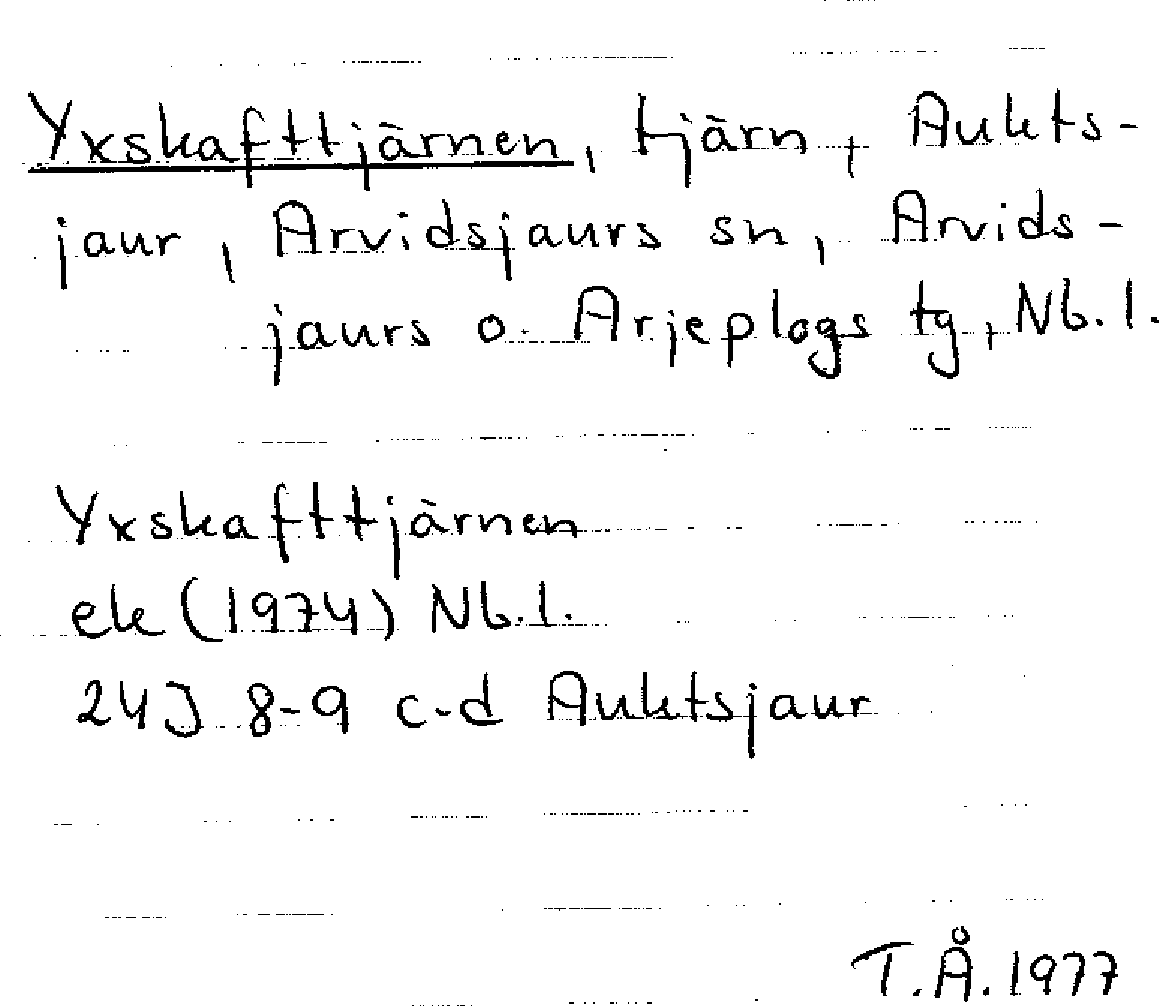 Yxskafttjärnen, tjärn, Aukts-
jaur, Arvidsjaurs sn, Arvids-
jaurs o. Arjeplogs tg, Nb.l.
Yxskafttjärnen
ek (1974) Nb.l.
24J 8-9 c-d Auktsjaur
T.Å.1977